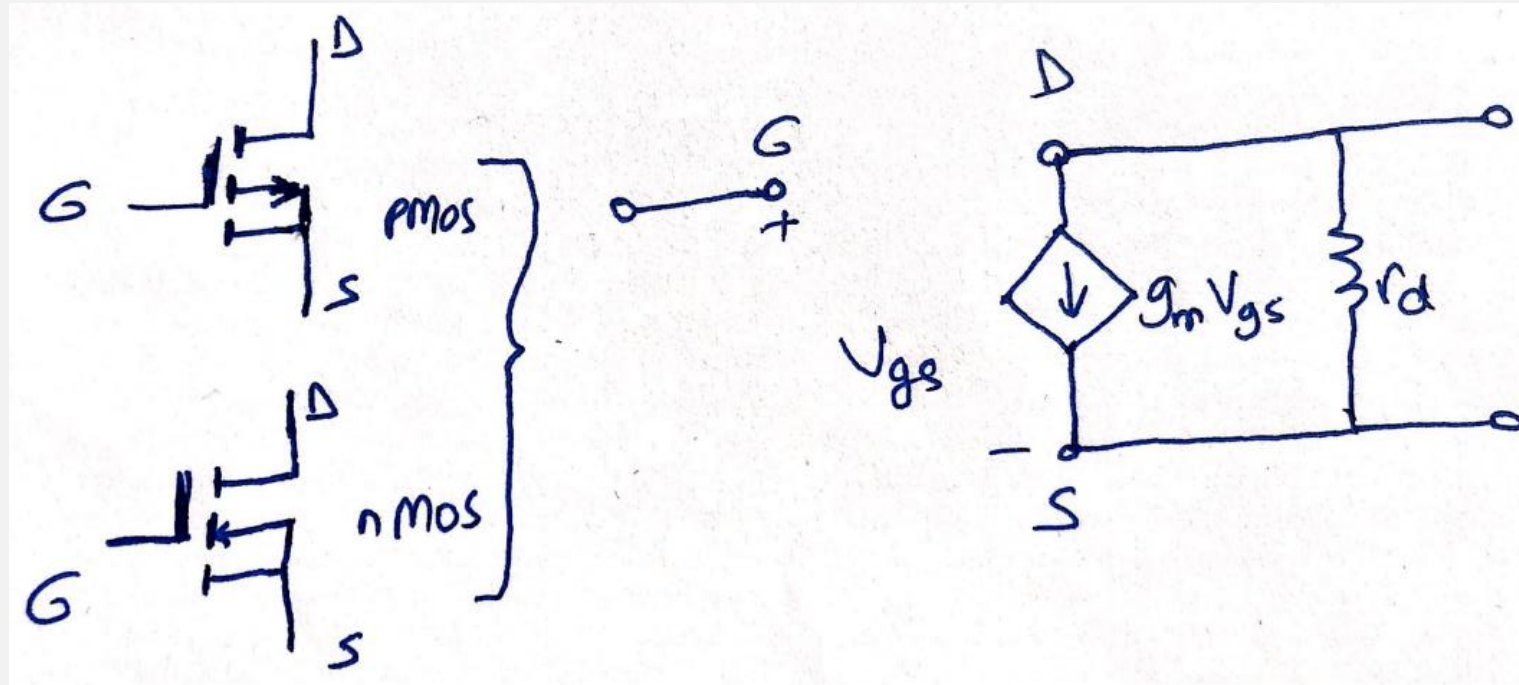 D
G
pMOS
S
D
G
nMOS
S
G
+
Vgs
-
D
gmVgs
rd
S